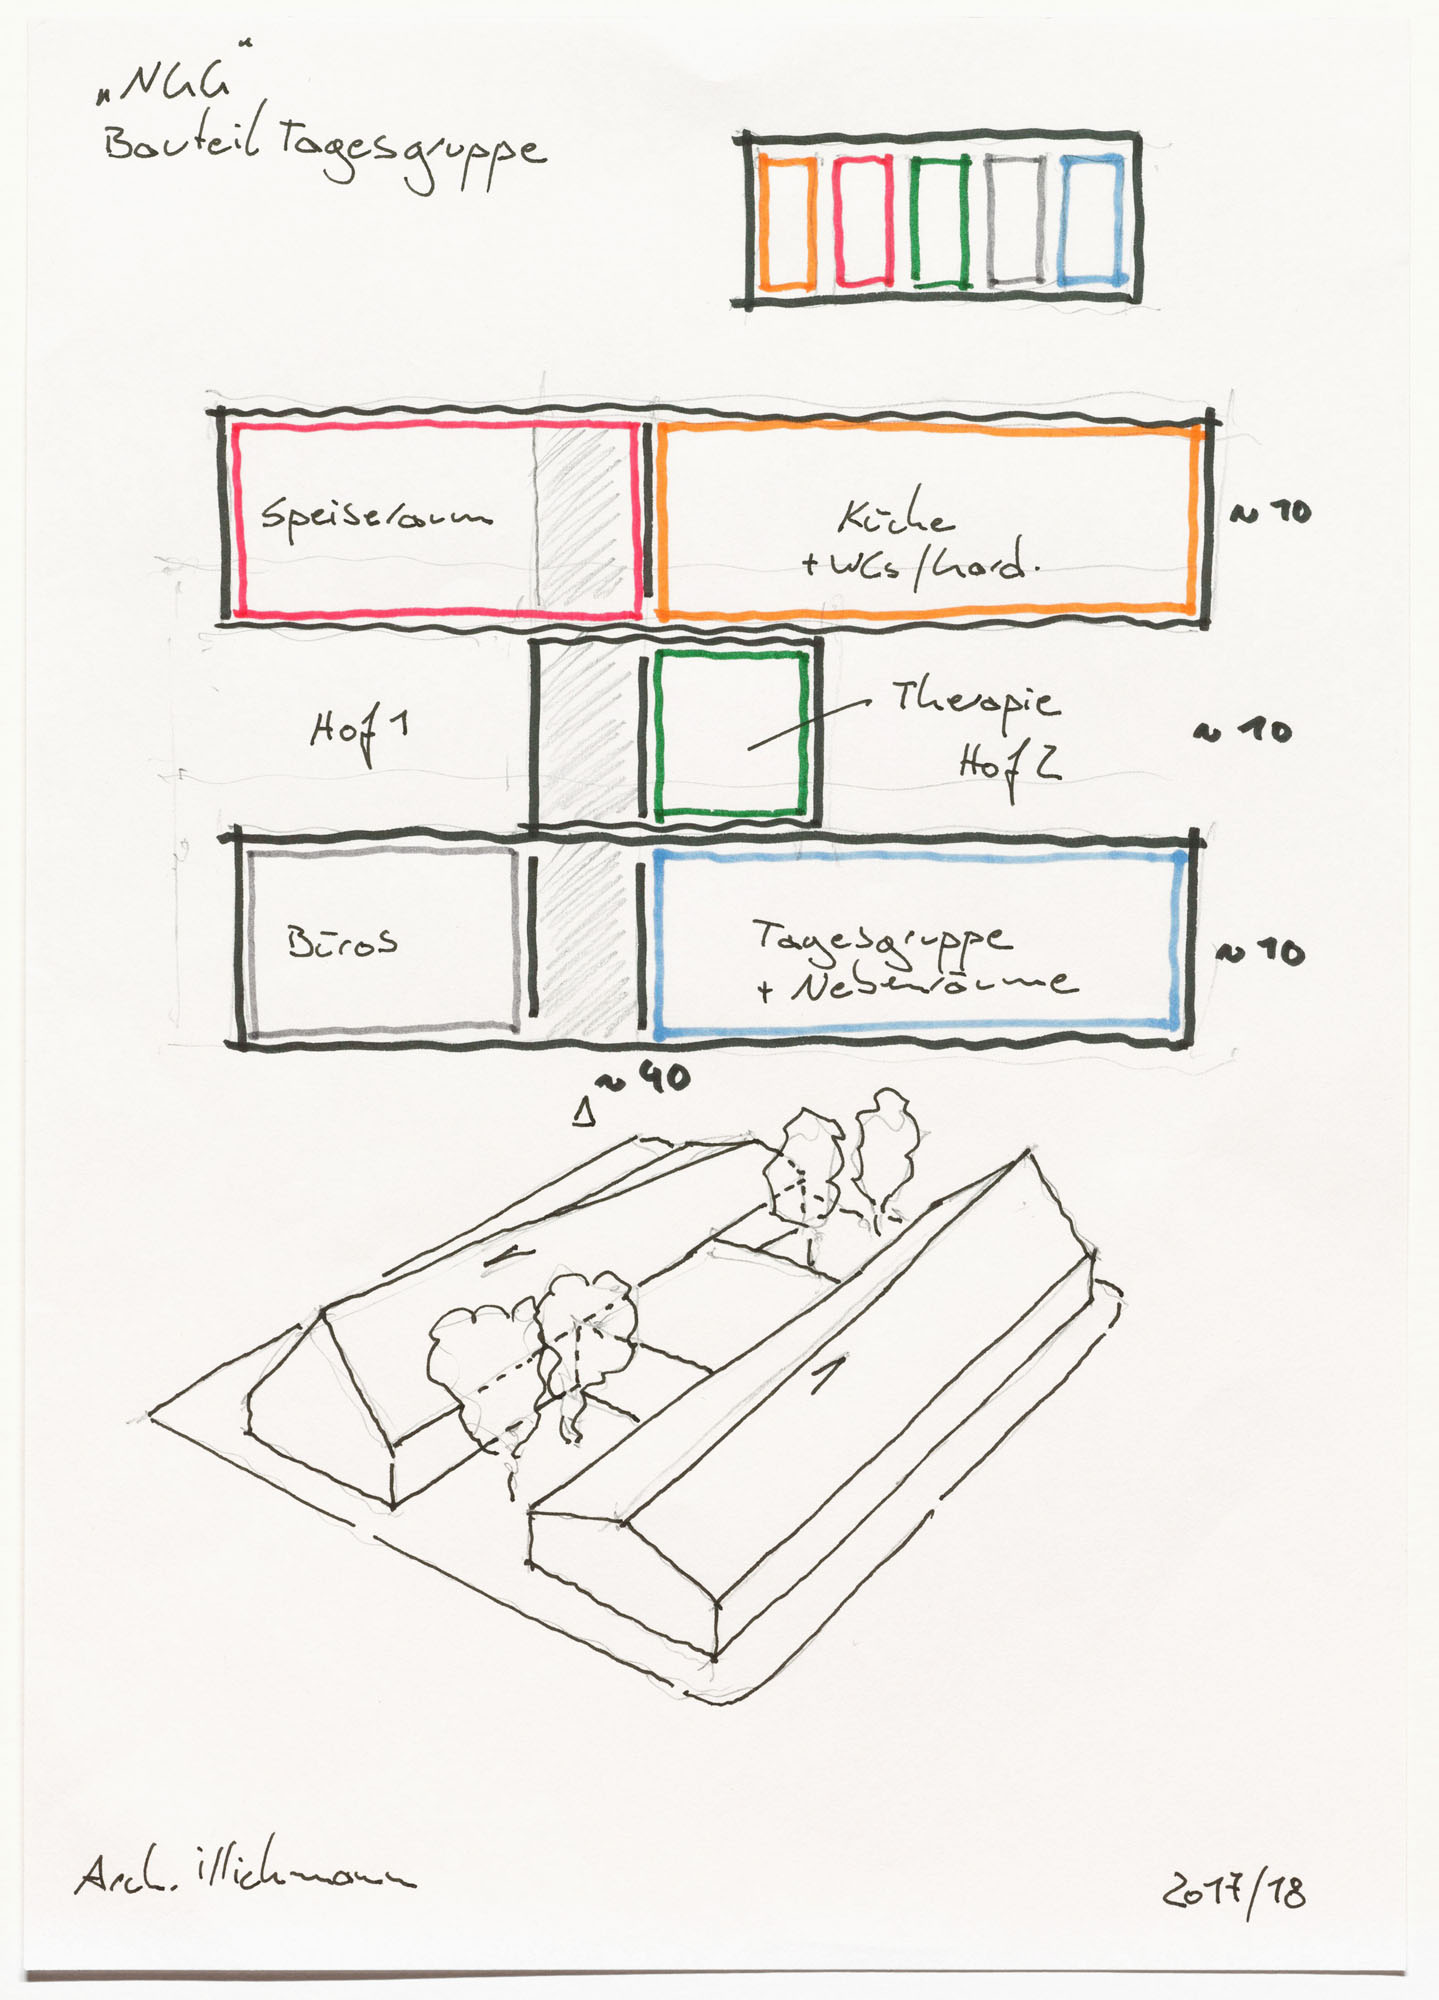 „NGG“
Bauteil Tagesgruppe
Speiseraum
Küche
+ WCs/Gard.
~ 10
Hof 1
Therapie
Hof 2
~ 10
Büros
Tagesgruppe
+ Nebenräume
~ 10
~ 40
Arch. illichmann
2017/18